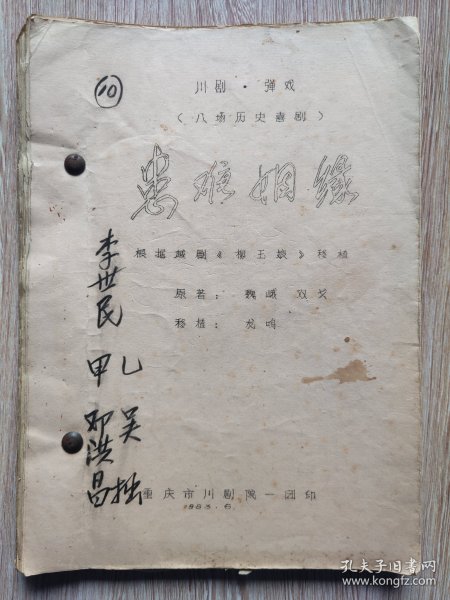 ⑩
川剧·弹戏
（八场历史喜剧）
患难姻缘
根据越剧《柳玉娘》移植
原著：魏峨 双戈
移植：龙鸣
李世民
甲 乙
邓洪昌 吴拙
重庆市川剧院一团印
1983.6.
孔夫子旧书网
www.kongfz.com